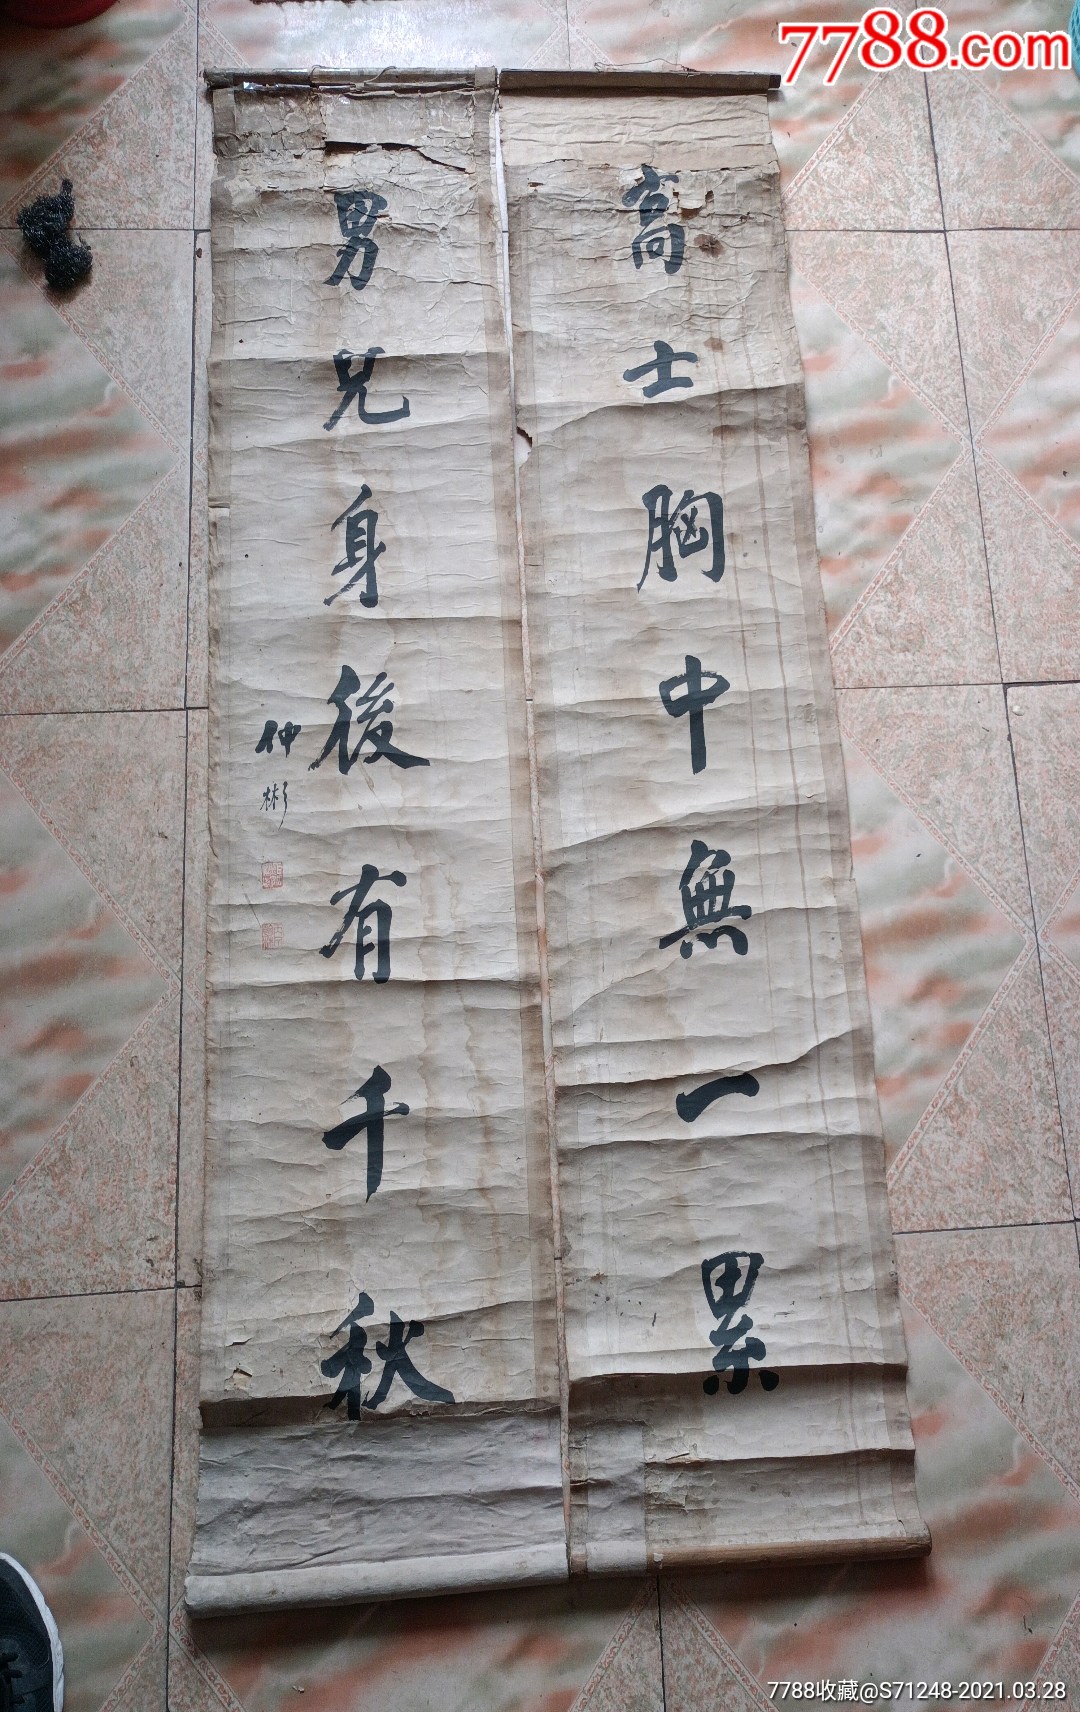 7788.com
高士胸中無一累
男兒身後有千秋
仲彬
7788收藏@S71248-2021.03.28